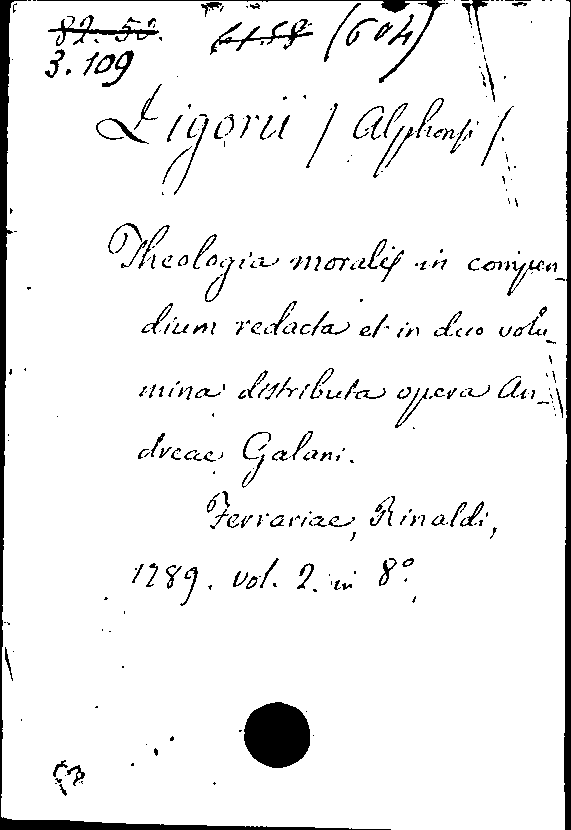 82. 50. 61.58 (604)
3.109
Ligorii / Alphonsi /.
Theologia moralis in compen_
dium redacta et in duo volu_
mina distributa opera An_
dreae Galani.
Ferrariae, Rinaldi,
1789. vol. 2. in 8º.